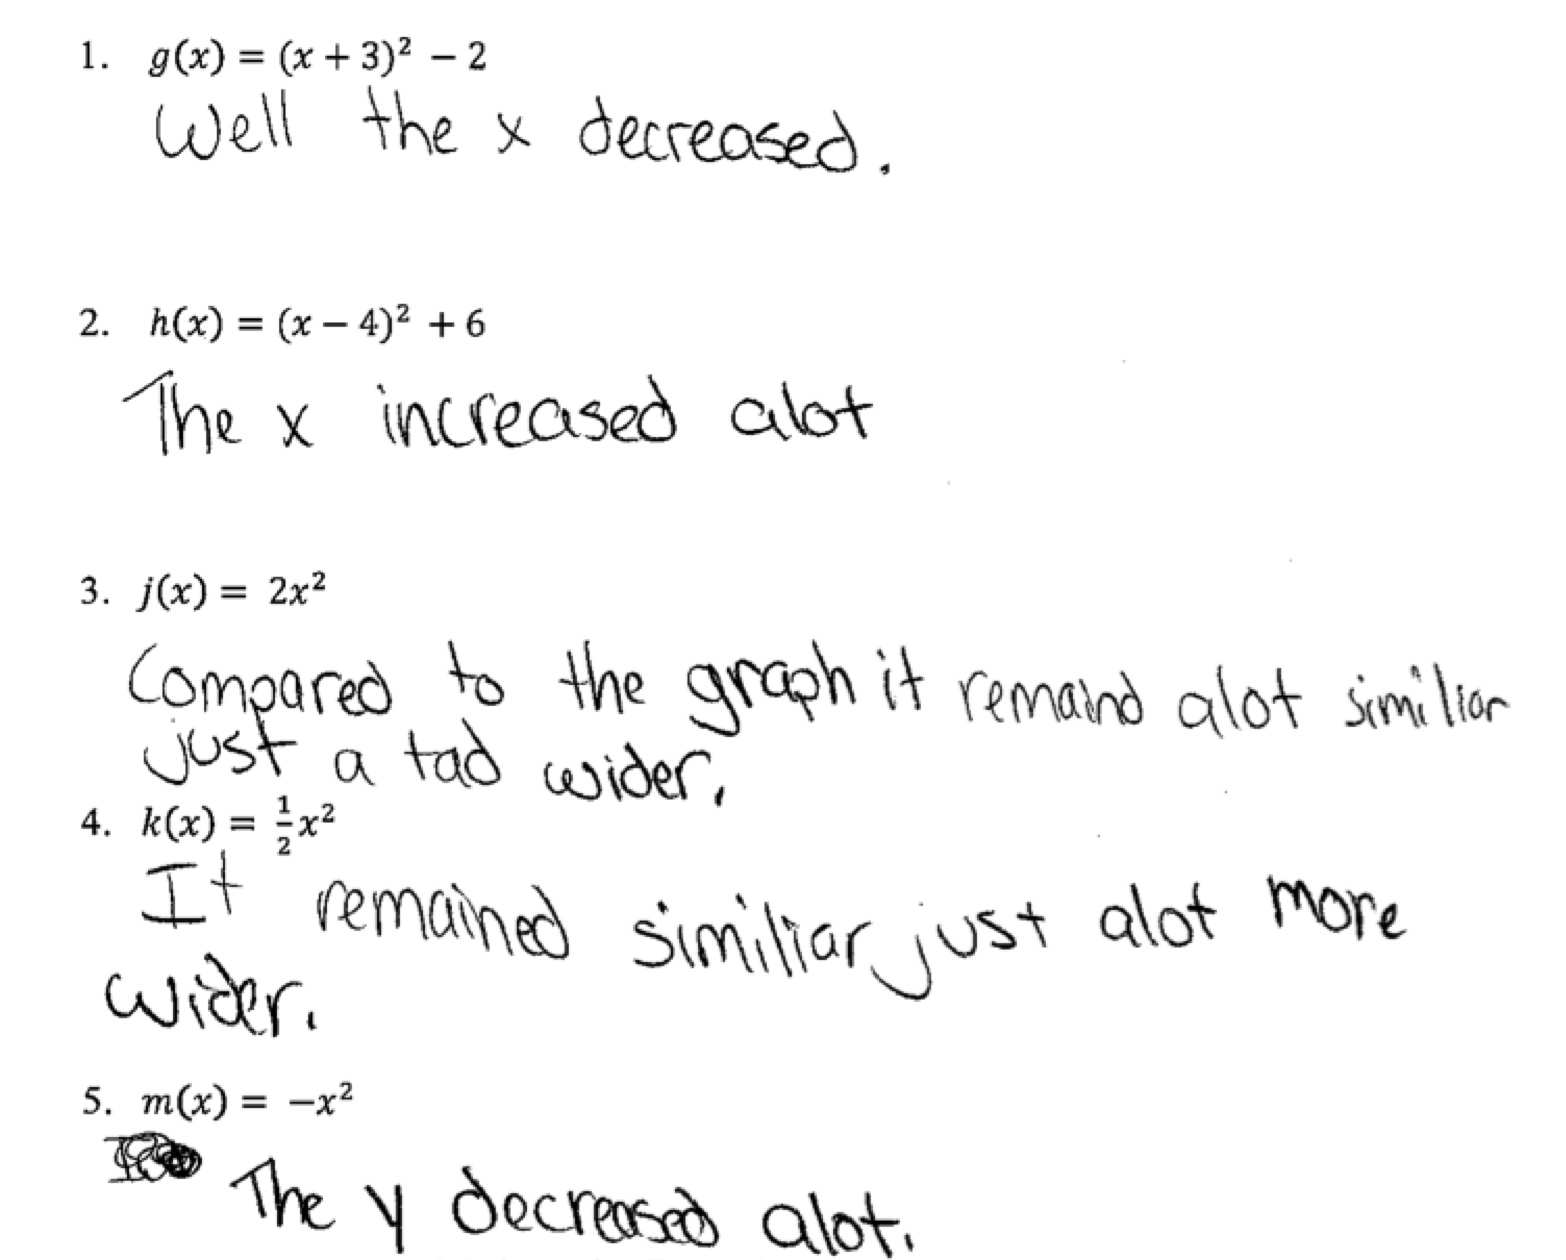 1. g(x) = (x + 3)² − 2
Well the x decreased.
2. h(x) = (x − 4)² + 6
The x increased alot
3. j(x) = 2x²
Compared to the graph it remaind alot similiar
just a tad wider.
4. k(x) = ½x²
It remained similiar just alot more
wider.
5. m(x) = −x²
The y decreased alot.